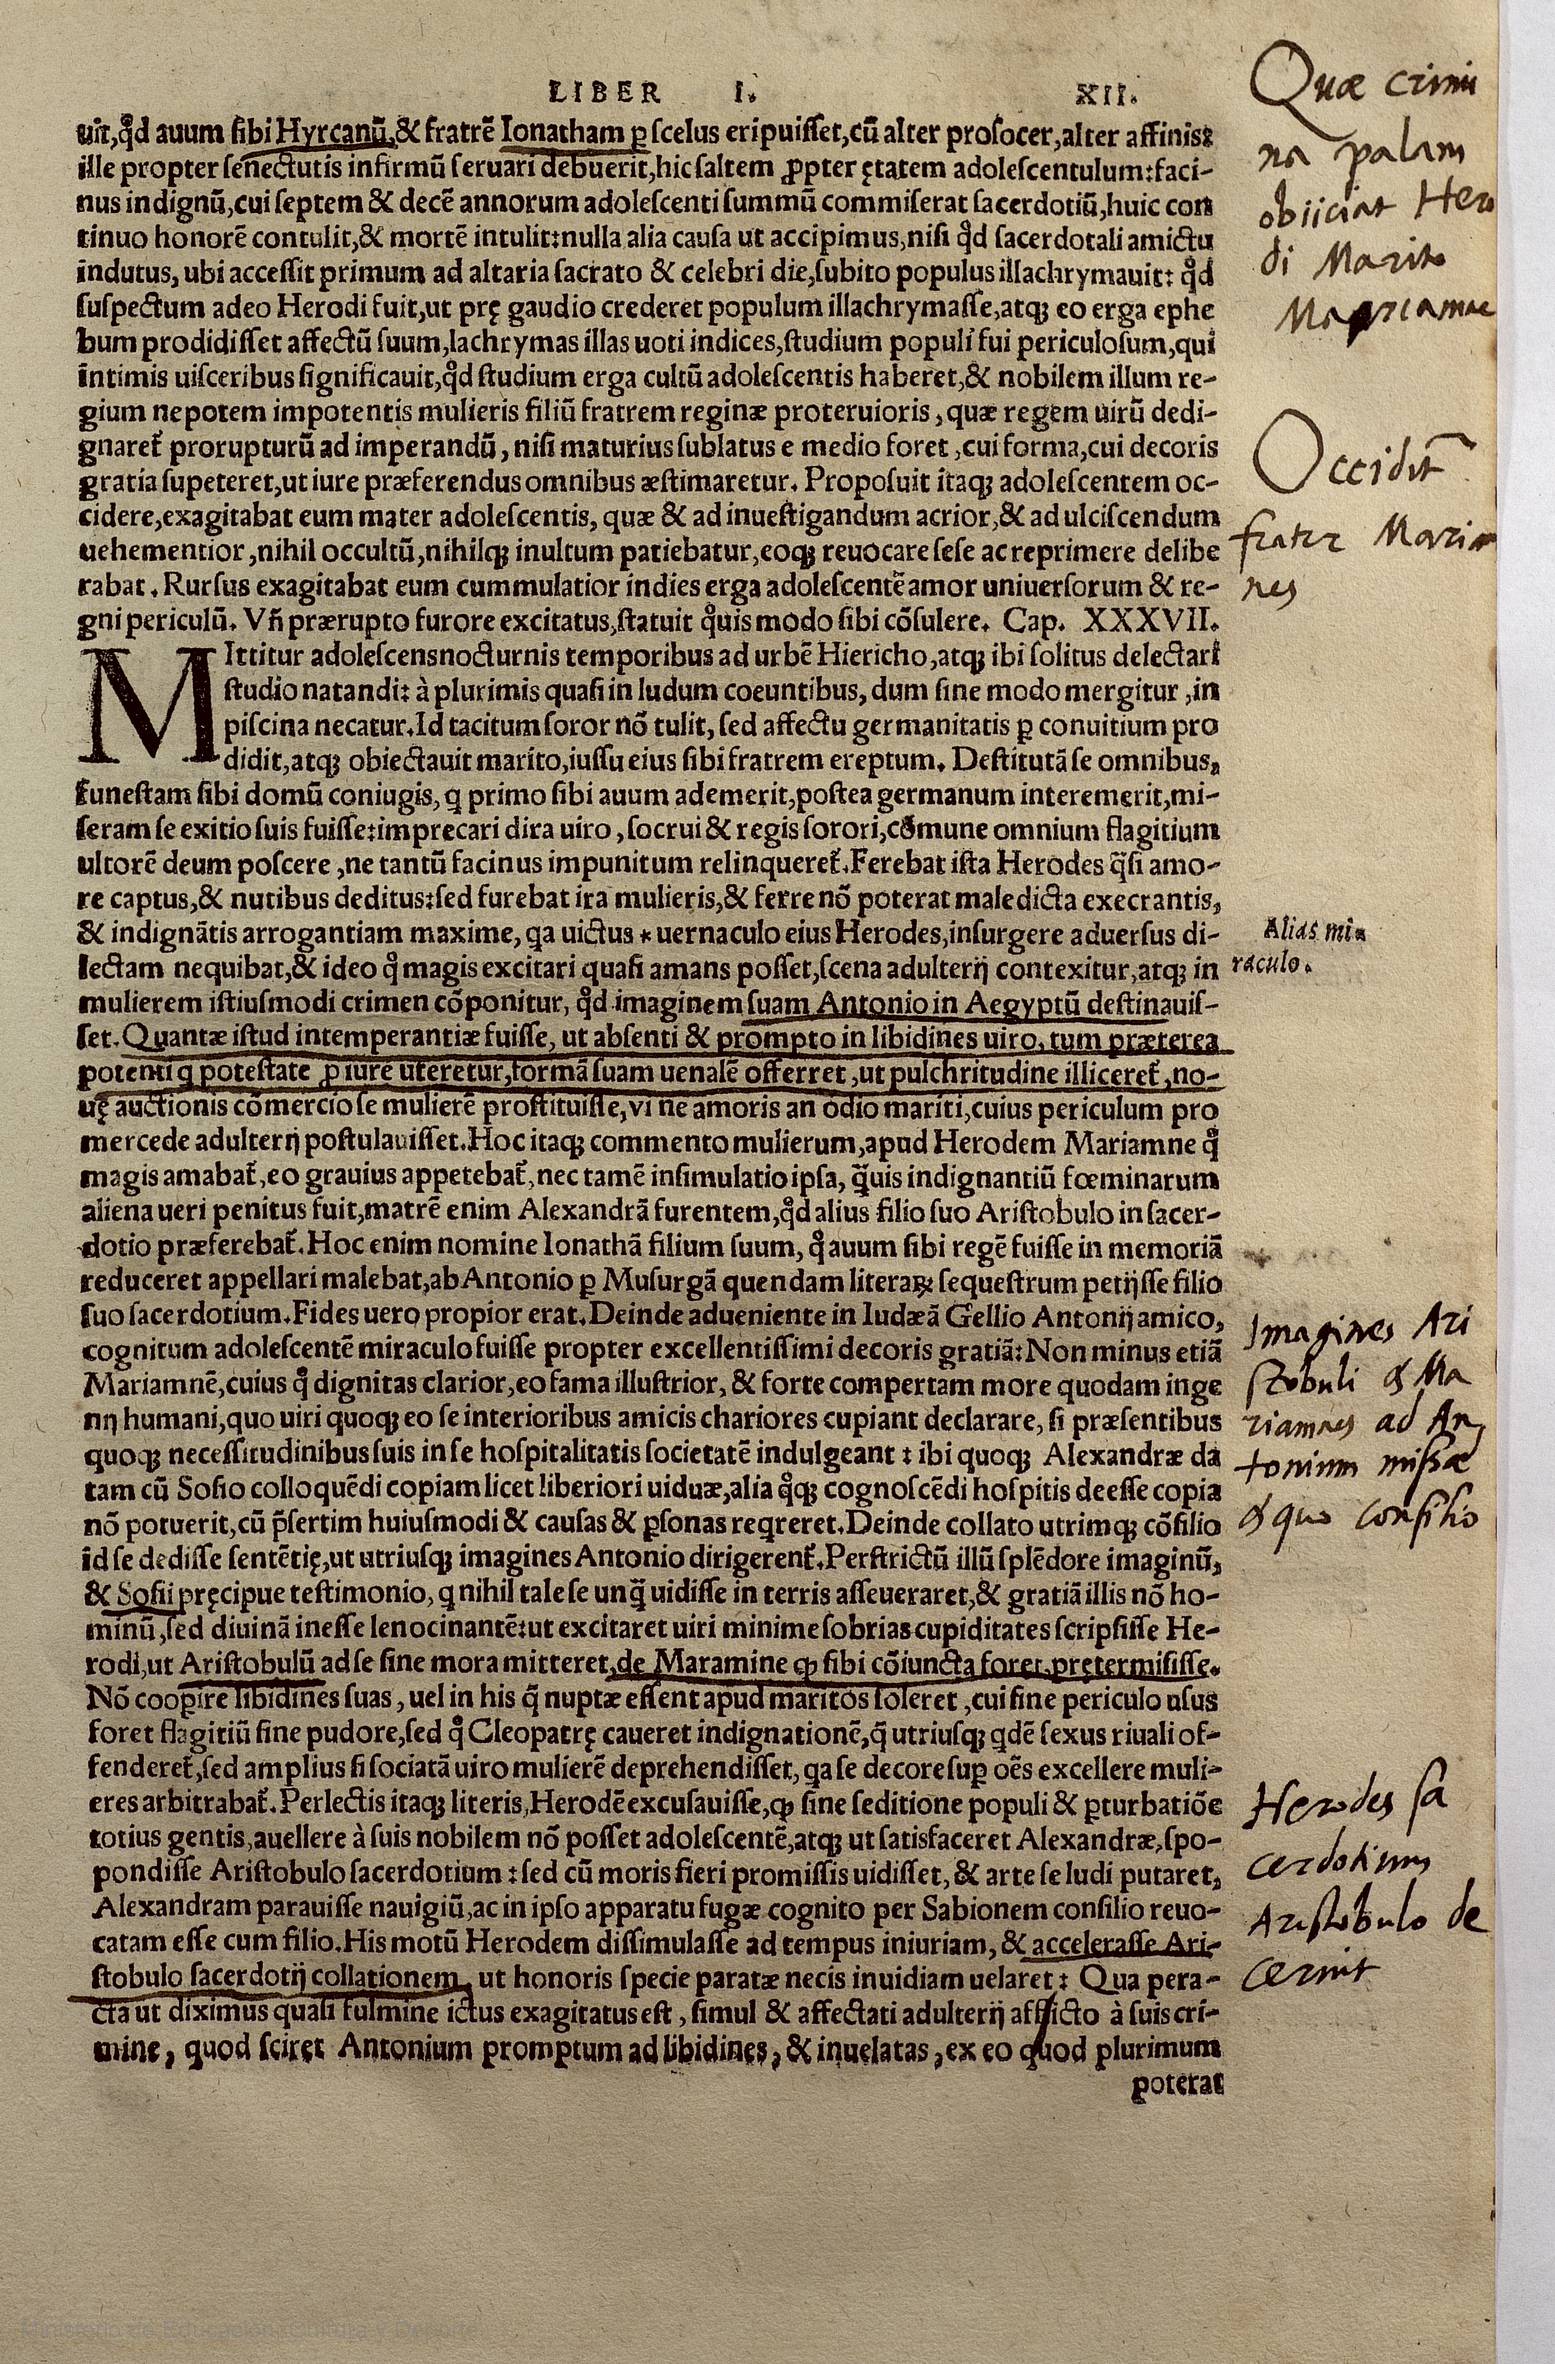 LIBER I. XII.
uit, qđ auum sibi Hyrcanũ, & fratrẽ Ionatham ꝑ scelus eripuisset, cũ alter prosocer, alter affinis:
ille propter senectutis infirmũ seruari debuerit, hic saltem ꝓpter ętatem adolescentulum: faci-
nus indignũ, cui septem & decẽ annorum adolescenti summũ commiserat sacerdotiũ, huic con
tinuo honorẽ contulit, & mortẽ intulit: nulla alia causa ut accipimus, nisi qđ sacerdotali amictu
indutus, ubi accessit primum ad altaria sacrato & celebri die, subito populus illachrymauit: qđ
suspectum adeo Herodi fuit, ut prę gaudio crederet populum illachrymasse, atqȝ eo erga ephe
bum prodidisset affectũ suum, lachrymas illas uoti indices, studium populi fui periculosum, qui
intimis uisceribus significauit, qđ studium erga cultũ adolescentis haberet, & nobilem illum re-
gium nepotem impotentis mulieris filiũ fratrem reginæ proteruioris, quæ regem uirũ dedi-
gnaret̃ prorupturũ ad imperandũ, nisi maturius sublatus e medio foret, cui forma, cui decoris
gratia supeteret, ut iure præferendus omnibus æstimaretur. Proposuit itaqȝ adolescentem oc-
cidere, exagitabat eum mater adolescentis, quæ & ad inuestigandum acrior, & ad ulciscendum
uehementior, nihil occultũ, nihilqȝ inultum patiebatur, eoqȝ reuocare sese ac reprimere delibe
rabat. Rursus exagitabat eum cummulatior indies erga adolescentẽ amor uniuersorum & re-
gni periculũ. Vñ prærupto furore excitatus, statuit qͦuis modo sibi cõsulere. Cap. XXXVII.
MIttitur adolescens nocturnis temporibus ad urbẽ Hiericho, atqȝ ibi solitus delectari
studio natandi: à plurimis quasi in ludum coeuntibus, dum sine modo mergitur, in
piscina necatur. Id tacitum soror nõ tulit, sed affectu germanitatis ꝑ conuitium pro
didit, atqȝ obiectauit marito, iussu eius sibi fratrem ereptum. Destitutã se omnibus,
funestam sibi domũ coniugis, q primo sibi auum ademerit, postea germanum interemerit, mi-
seram se exitio suis fuisse: imprecari dira uiro, socrui & regis sorori, cõmune omnium flagitium
ultorẽ deum poscere, ne tantũ facinus impunitum relinqueret̃. Ferebat ista Herodes q̃si amo-
re captus, & nutibus deditus: sed furebat ira mulieris, & ferre nõ poterat maledicta execrantis,
& indignãtis arrogantiam maxime, qa uictus * uernaculo eius Herodes, insurgere aduersus di-
lectam nequibat, & ideo qͦ magis excitari quasi amans posset, scena adulterij contexitur, atqȝ in
mulierem istiusmodi crimen cõponitur, qđ imaginem suam Antonio in Aegyptũ destinauis-
set. Quantæ istud intemperantiæ fuisse, ut absenti & prompto in libidines uiro, tum præterea
potenti q potestate ꝓ iure uteretur, formã suam uenalẽ offerret, ut pulchritudine illiceret̃, no-
uę auctionis cõmercio se mulierẽ prostituisse, vi ne amoris an odio mariti, cuius periculum pro
mercede adulterij postulauisset. Hoc itaqȝ commento mulierum, apud Herodem Mariamne qͦ
magis amabat̃, eo grauius appetebat̃, nec tamẽ insimulatio ipsa, q̃uis indignantiũ fœminarum
aliena ueri penitus fuit, matrẽ enim Alexandrã furentem, qđ alius filio suo Aristobulo in sacer-
dotio præferebat̃. Hoc enim nomine Ionathã filium suum, qͦ auum sibi regẽ fuisse in memoriã
reduceret appellari malebat, ab Antonio ꝑ Musurgã quendam literaꝝ sequestrum petijsse filio
suo sacerdotium. Fides uero propior erat. Deinde adueniente in Iudæã Gellio Antonij amico,
cognitum adolescentẽ miraculo fuisse propter excellentissimi decoris gratiã: Non minus etiã
Mariamnẽ, cuius qͦ dignitas clarior, eo fama illustrior, & forte compertam more quodam inge
nij humani, quo uiri quoqȝ eo se interioribus amicis chariores cupiant declarare, si præsentibus
quoqȝ necessitudinibus suis in se hospitalitatis societatẽ indulgeant: ibi quoqȝ Alexandræ da
tam cũ Sosio colloquẽdi copiam licet liberiori uiduæ, alia qͦqȝ cognoscẽdi hospitis deesse copia
nõ potuerit, cũ p̃sertim huiusmodi & causas & ꝑsonas reqreret. Deinde collato utrimqȝ cõsilio
id se dedisse sentẽtię, ut utriusqȝ imagines Antonio dirigerent̃. Perstrictũ illũ splẽdore imaginũ,
& Sosii pręcipue testimonio, q nihil tale se unq̃ uidisse in terris asseueraret, & gratiã illis nõ ho-
minũ, sed diuinã inesse lenocinantẽ: ut excitaret uiri minime sobrias cupiditates scripsisse He-
rodi, ut Aristobulũ ad se sine mora mitteret, de Maramine ꝙ sibi cõiuncta foret, prętermisisse.
Nõ cooꝑire libidines suas, uel in his q̃ nuptæ essent apud maritos soleret, cui sine periculo usus
foret flagitiũ sine pudore, sed qͦ Cleopatrę caueret indignationẽ, q̃ utriusqȝ qdẽ sexus riuali of-
fenderet̃, sed amplius si sociatã uiro mulierẽ deprehendisset, qa se decore suꝑ oẽs excellere muli-
eres arbitrabat̃. Perlectis itaqȝ literis, Herodẽ excusauisse, ꝙ sine seditione populi & ꝑturbatiõe
totius gentis, auellere à suis nobilem nõ posset adolescentẽ, atqȝ ut satisfaceret Alexandræ, spo-
pondisse Aristobulo sacerdotium: sed cũ moris fieri promissis uidisset, & arte se ludi putaret,
Alexandram parauisse nauigiũ, ac in ipso apparatu fugæ cognito per Sabionem consilio reuo-
catam esse cum filio. His motũ Herodem dissimulasse ad tempus iniuriam, & accelerasse Ari-
stobulo sacerdotij collationem, ut honoris specie paratæ necis inuidiam uelaret: Qua pera-
cta ut diximus quasi fulmine ictus exagitatus est, simul & affectati adulterij afflicto à suis cri-
mine, quod sciret Antonium promptum ad libidines, & inuelatas, ex eo quod plurimum
poterat
Quæ crimi
na palam
obiiciat Hero
di Marito
Mariamne
Occidit
frater Mariam
nes
Alias mi-
raculo.
Imagines Ari
stobuli & Ma
riamnes ad An
tonium missæ
& quo consilio
Herodes sa
cerdotium
Aristobulo de
cernit
Ministerio de Educación, Cultura y Deporte